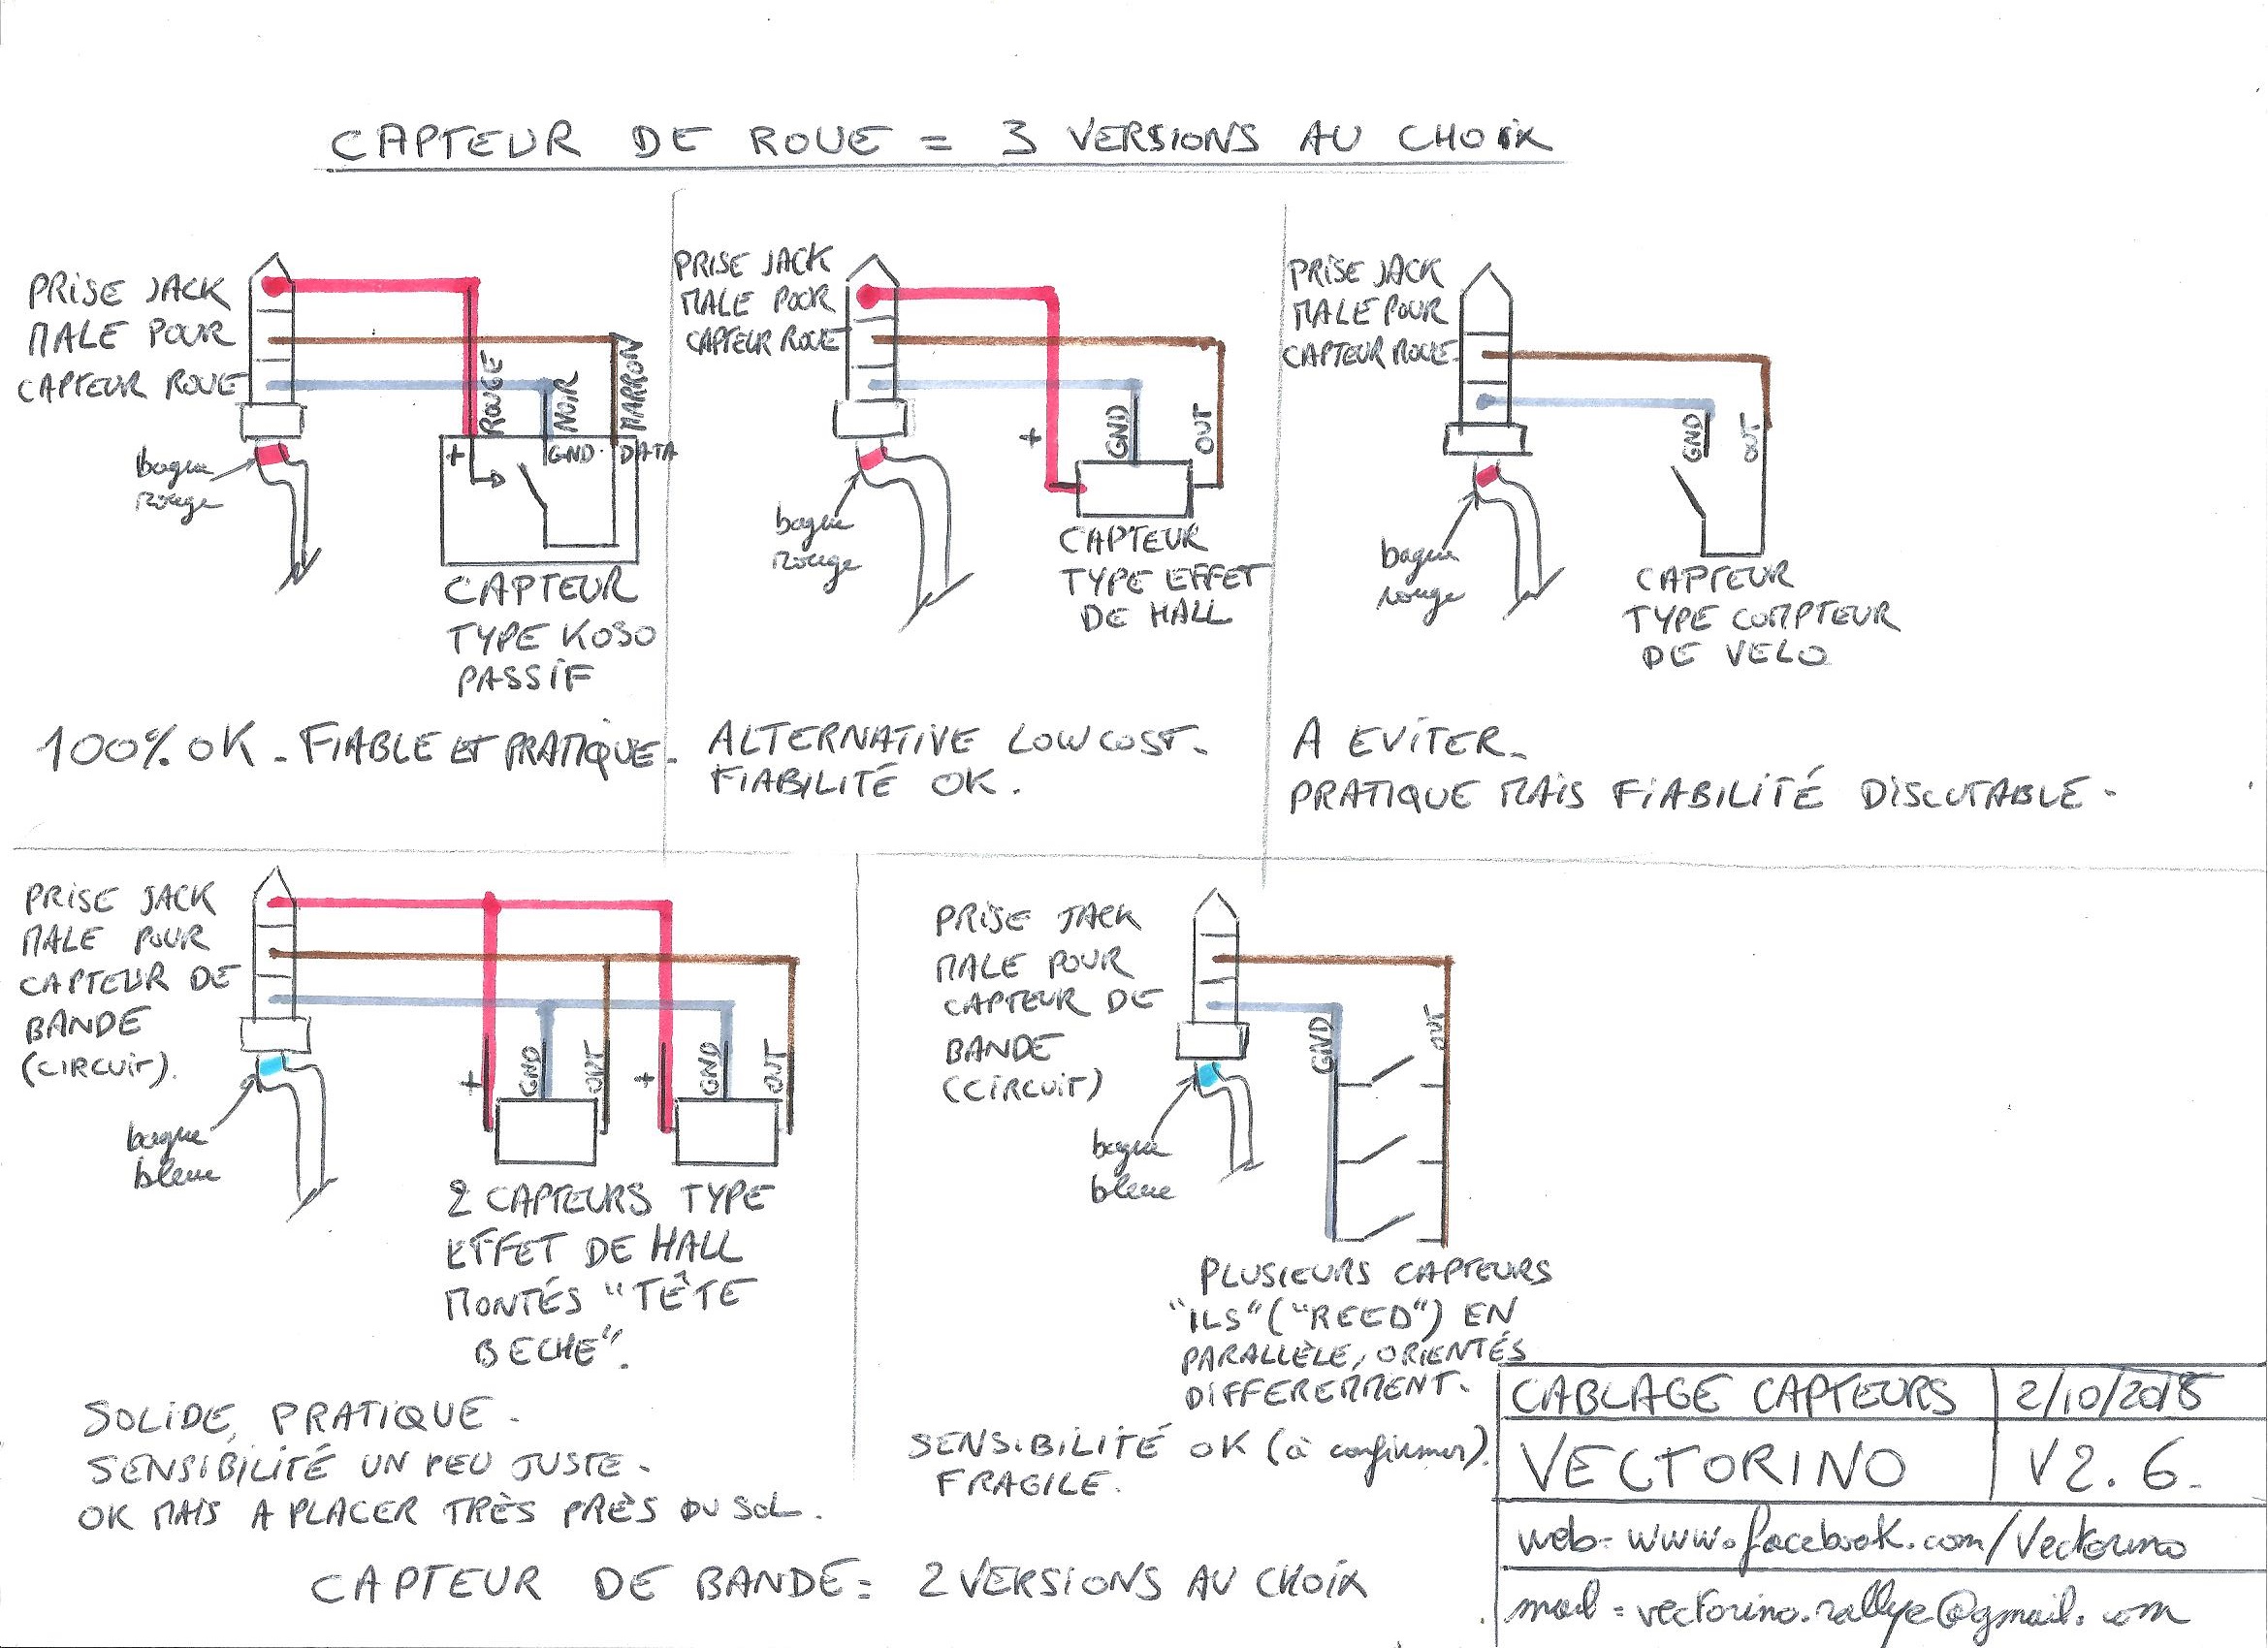 CAPTEUR DE ROUE = 3 VERSIONS AU CHOIX
PRISE JACK
MALE POUR
CAPTEUR ROUE
bague
rouge
ROUGE
NOIR
MARRON
+
GND
DATA
CAPTEUR
TYPE KOSO
PASSIF
100% OK - FIABLE ET PRATIQUE -
PRISE JACK
MALE POUR
CAPTEUR ROUE
bague
rouge
+
GND
OUT
CAPTEUR
TYPE EFFET
DE HALL
ALTERNATIVE LOWCOST -
FIABILITÉ OK.
PRISE JACK
MALE POUR
CAPTEUR ROUE
bague
rouge
GND
OUT
CAPTEUR
TYPE COMPTEUR
DE VELO
A EVITER -
PRATIQUE MAIS FIABILITÉ DISCUTABLE -
PRISE JACK
MALE POUR
CAPTEUR DE
BANDE
(CIRCUIT).
bague
bleue
+
GND
OUT
+
GND
OUT
2 CAPTEURS TYPE
EFFET DE HALL
MONTÉS "TÊTE
BECHE".
SOLIDE, PRATIQUE -
SENSIBILITÉ UN PEU JUSTE -
OK MAIS A PLACER TRÈS PRÈS DU SOL.
PRISE JACK
MALE POUR
CAPTEUR DE
BANDE
(CIRCUIT)
bague
bleue
GND
OUT
PLUSIEURS CAPTEURS
"ILS" ("REED") EN
PARALLÈLE, ORIENTÉS
DIFFEREMMENT.
SENSIBILITÉ OK (à confirmer).
FRAGILE.
CAPTEUR DE BANDE = 2 VERSIONS AU CHOIX
CABLAGE CAPTEURS 2/10/2018
VECTORINO V2.6.
web = www.facebook.com/Vectorino
mail = vectorino.rallye@gmail.com